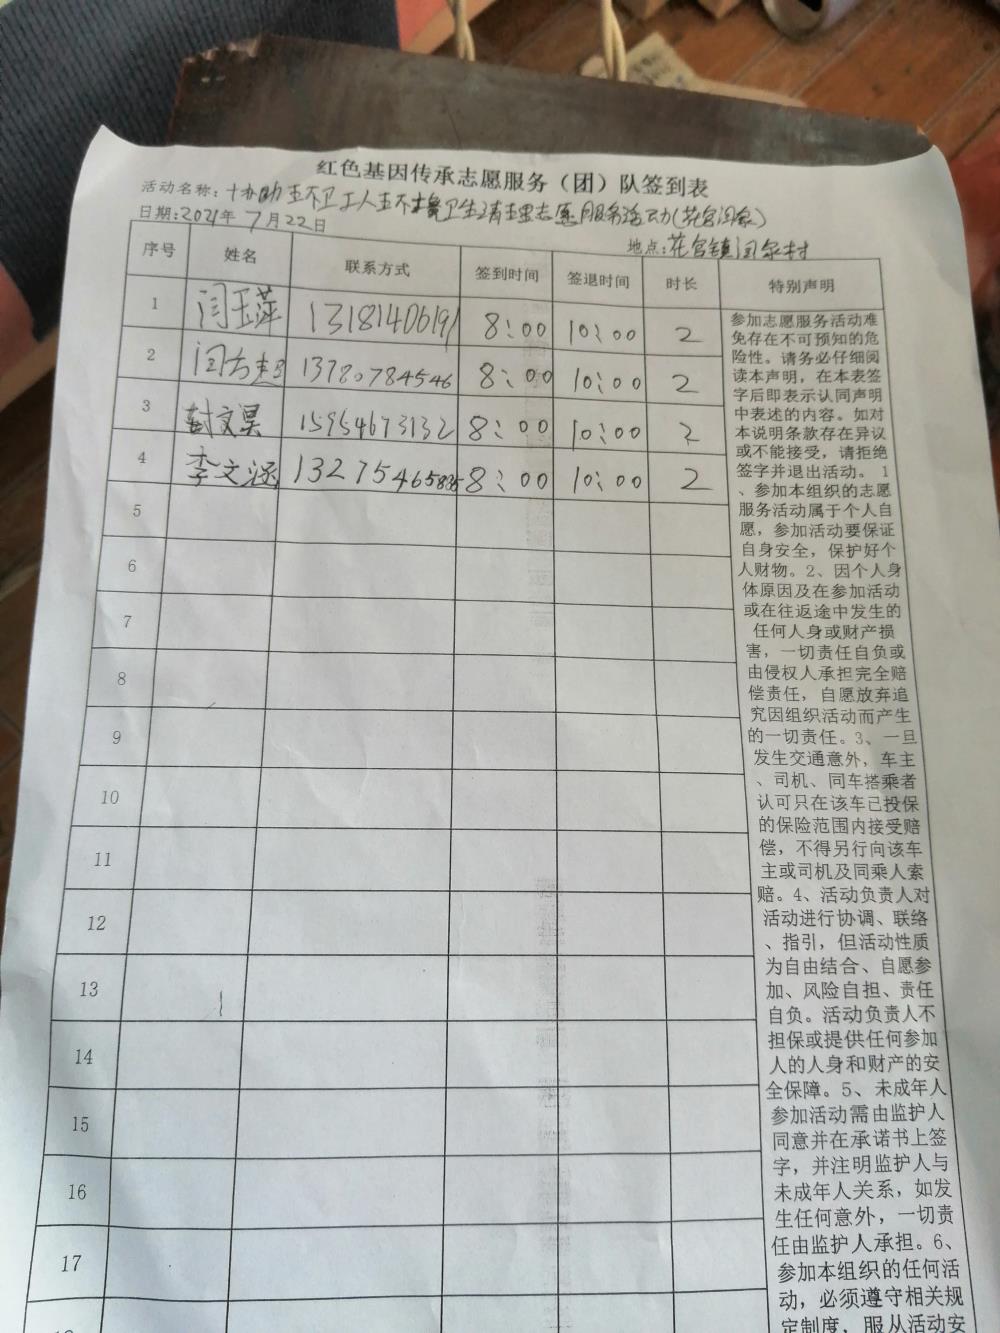 红色基因传承志愿服务（团）队签到表
活动名称：协助环卫工人环境卫生清理志愿服务活动(花官闫家)
日期:2021年7月22日
地点:花官镇闫家村
序号 姓名 联系方式 签到时间 签退时间 时长 特别声明
1 闫玉萍 13181406191 8:00 10:00 2
2 闫方超 13780784546 8:00 10:00 2
3 封文昊 15954673132 8:00 10:00 2
4 李文涵 13275465835 8:00 10:00 2
5
6
7
8
9
10
11
12
13
14
15
16
17
参加志愿服务活动难
免存在不可预知的危
险性。请务必仔细阅
读本声明，在本表签
字后即表示认同声明
中表述的内容。如对
本说明条款存在异议
或不能接受，请拒绝
签字并退出活动。 1
、参加本组织的志愿
服务活动属于个人自
愿，参加活动要保证
自身安全，保护好个
人财物。2、因个人身
体原因及在参加活动
或在往返途中发生的
任何人身或财产损
害，一切责任自负或
由侵权人承担完全赔
偿责任，自愿放弃追
究因组织活动而产生
的一切责任。3、一旦
发生交通意外，车主
、司机、同车搭乘者
认可只在该车已投保
的保险范围内接受赔
偿，不得另行向该车
主或司机及同乘人索
赔。4、活动负责人对
活动进行协调、联络
、指引，但活动性质
为自由结合、自愿参
加、风险自担、责任
自负。活动负责人不
担保或提供任何参加
人的人身和财产的安
全保障。5、未成年人
参加活动需由监护人
同意并在承诺书上签
字，并注明监护人与
未成年人关系，如发
生任何意外，一切责
任由监护人承担。6、
参加本组织的任何活
动，必须遵守相关规
定制度，服从活动安